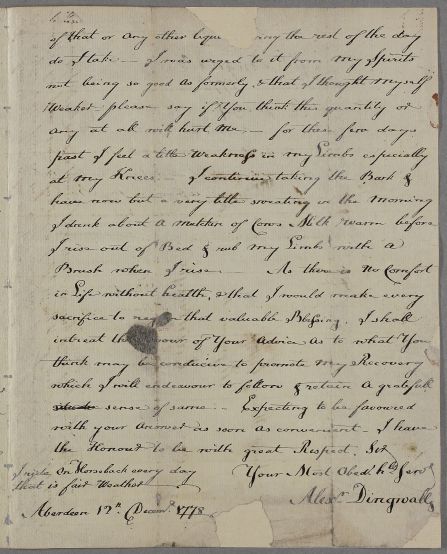 of that or any other lique ring the rest of the day
do I take — I was urged to it from my Spirits
not being so good as formerly & that I thought myself
Weaker please say if You think this quantity or
any at all will hurt me. — for these few days
past I feel a little weakness in my Limbs especially
at my Knees — I continue taking the Bark &
have now but a very little sweating in the Morning
I drink about a Mutchkin of Cows Milk warm before
I rise out of Bed & rub my Limbs with a
Brush when I rise As there is no Comfort
in Life without health, & that I would make every
sacrifice to that valuable Blessing. I shall
intreat the favour of Your Advice as to what You
think may be conducive to promote my Recovery
which I will endeavour to follow & retain a gratefull
sense of same — Expecting to be favoured
with your Answer as soon as convenient. I have
the Honour to be with great Respect. Sir
I ride on Horseback every day
that is fair Weather
Your Most Obedt. Servt
Alexr. Dingwall
Aberdeen 12th. Decemr. 1778